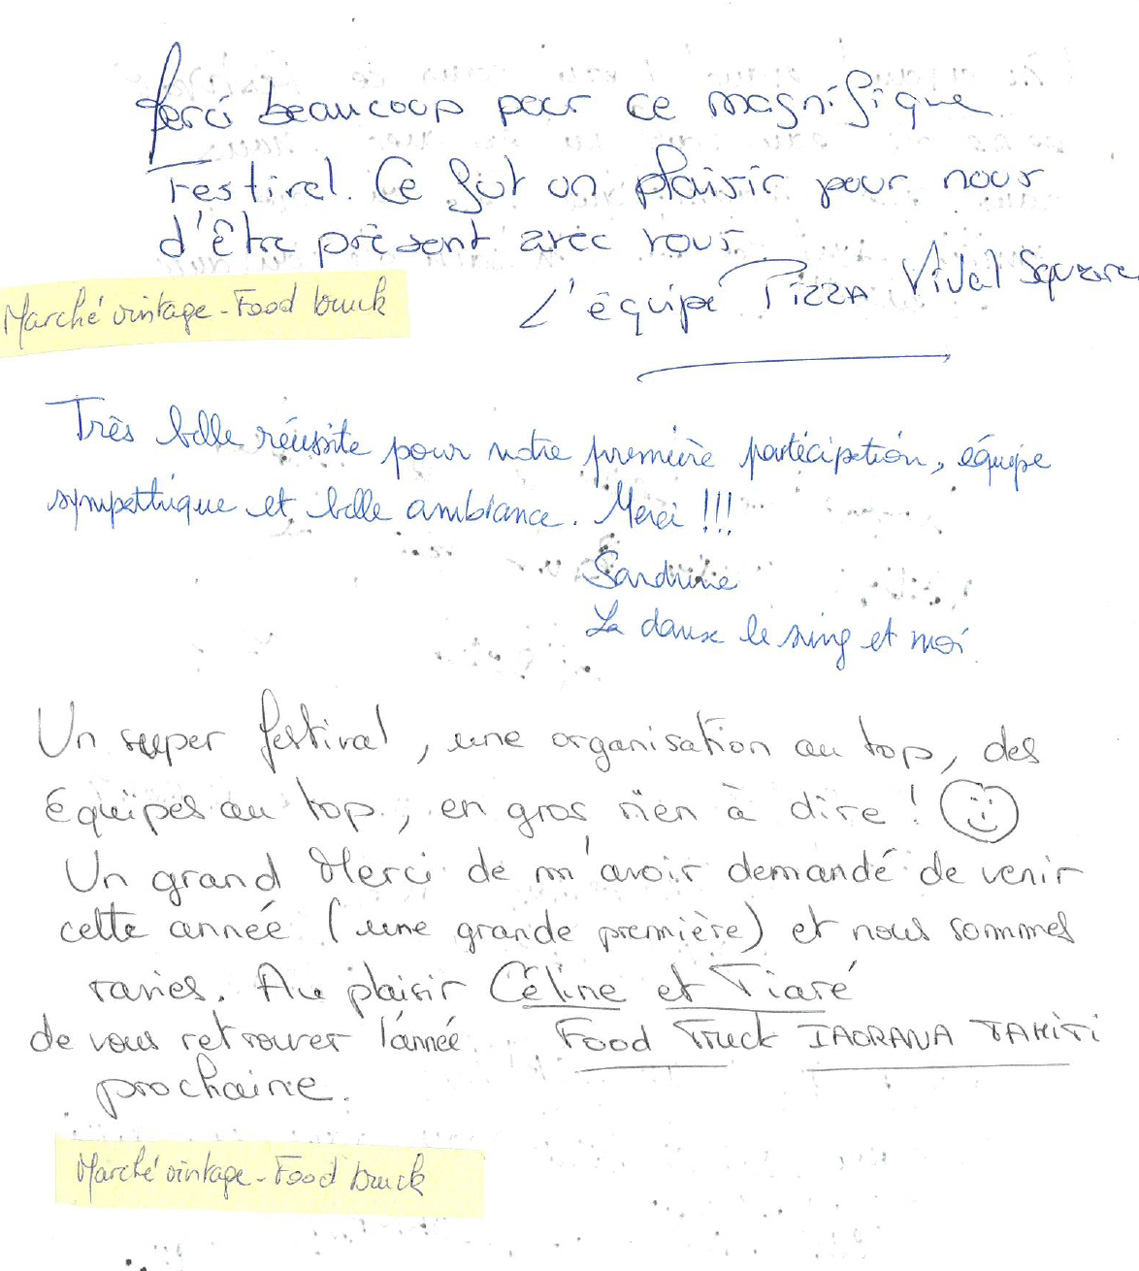 Merci beaucoup pour ce magnifique
Festival. Ce fut un plaisir pour nous
d'être présent avec vous
L'équipe Pizza Vival Square
Marché vintage - Food truck
Très belle réussite pour notre première participation, équipe
sympathique et belle ambiance. Merci !!!
Sandrine
La danse le swing et moi
Un super festival, une organisation au top, des
équipes au top, en gros rien à dire !
Un grand Merci de m'avoir demandé de venir
cette année (une grande première) et nous sommes
ravies. Au plaisir Céline et Tiaré
de vous retrouver l'année Food Truck IAORANA TAHITI
prochaine.
Marché vintage - Food truck